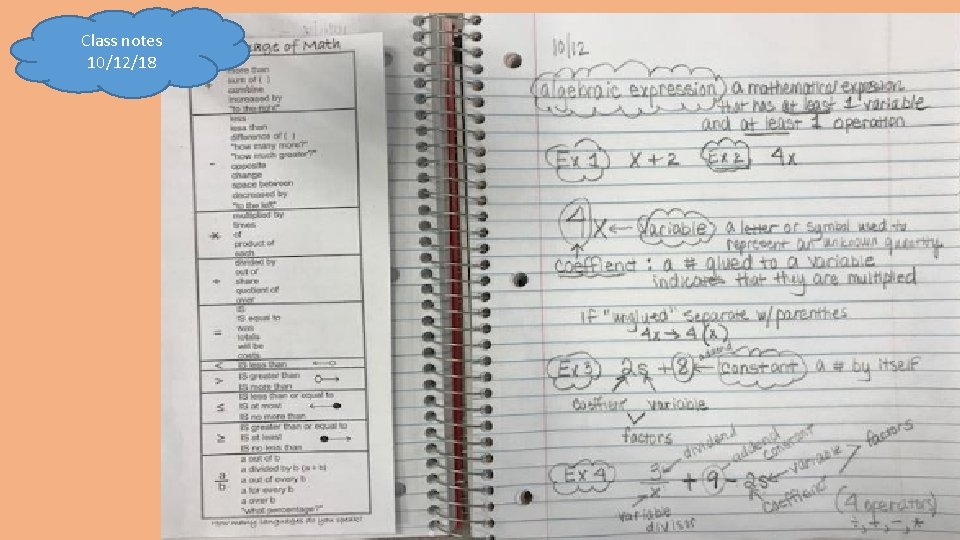 Class notes
10/12/18
age of Math
more than
sum of ( )
combine
increased by
"to the right"
+
less
less than
difference of ( )
"how many more?"
"how much greater?"
opposite
change
space between
decreased by
"to the left"
-
multiplied by
times
of
product of
each
*
divided by
out of
share
quotient of
over
÷
IS
IS equal to
was
totals
will be
costs
=
< IS less than
> IS greater than
IS more than
≤ IS less than or equal to
IS at most
IS no more than
≥ IS greater than or equal to
IS at least
IS no less than
a/b
a out of b
a divided by b (a ÷ b)
a out of every b
a for every b
a over b
"what percentage?"
How many languages do you speak?
10/12
algebraic expression) a mathematical expression
that has at least 1 variable
and at least 1 operation
Ex 1) x + 2 Ex 2) 4x
4x ← variable) a letter or symbol used to
represent an unknown quantity
coefficient : a # glued to a variable
indicates that they are multiplied
If "unglued" separate w/parenthes
4x → 4(x)
addend
Ex 3) 2s + 8 ← constant) a # by itself
coefficient variable
factors
dividend addend constant variable factors
Ex 4) 3/x + 9 - 2s
variable divisor coefficient (4 operators)
÷, +, -, *